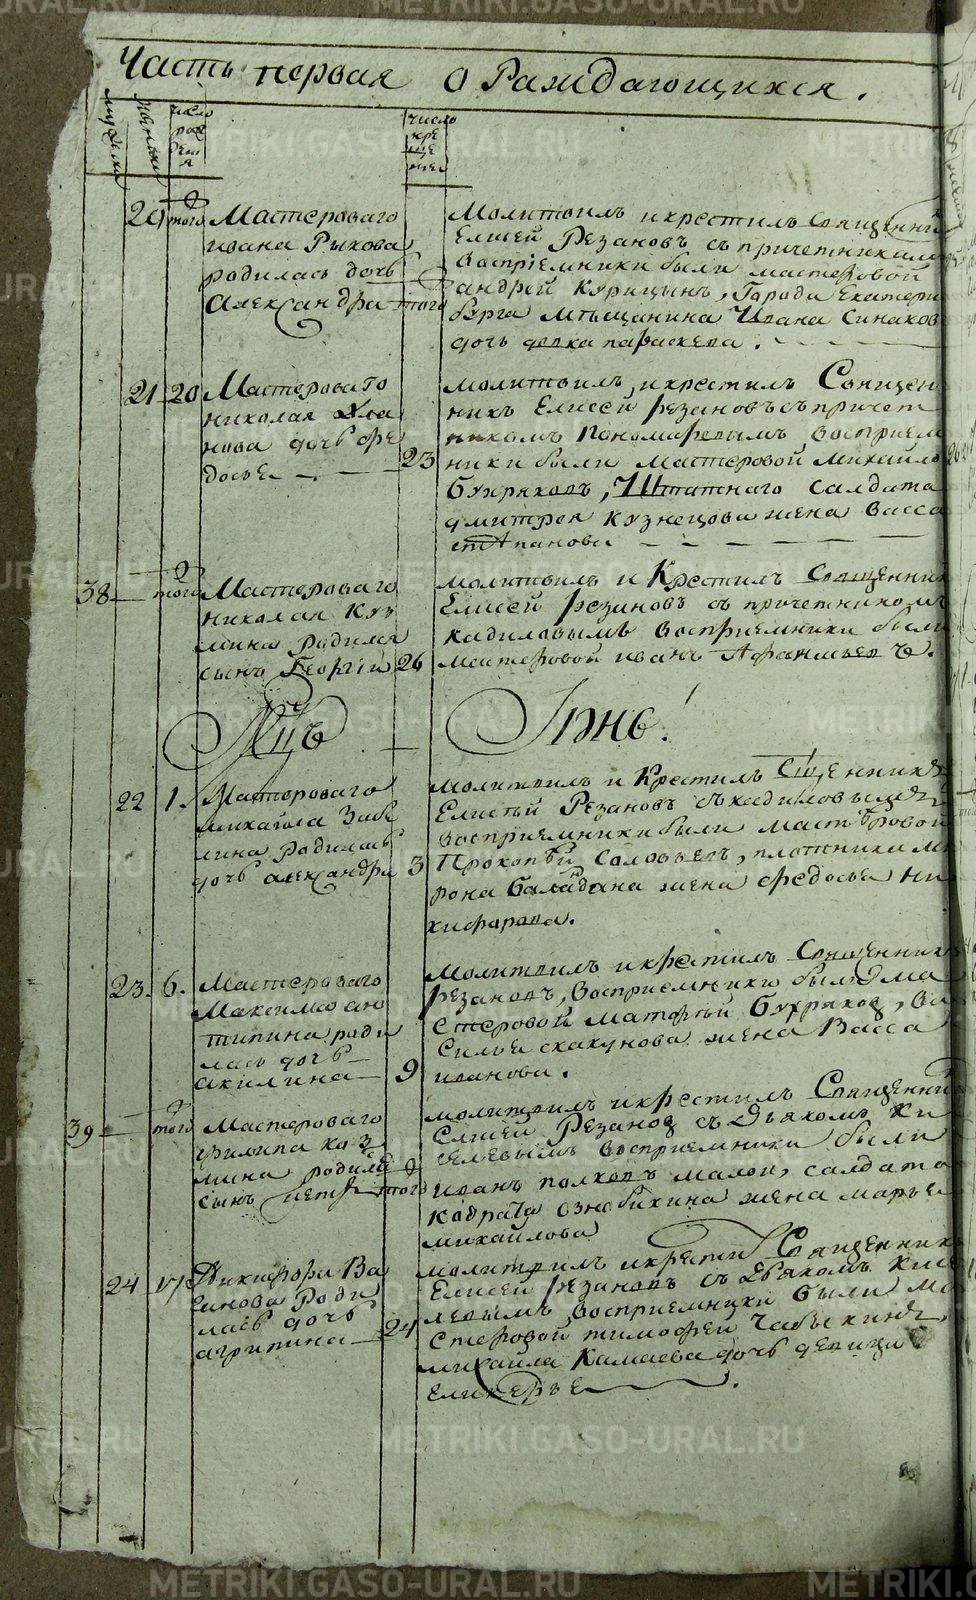 Часть первая О Раждающихся.
мужска
женска
число рож дения
число кре ще ния
20 того Мастероваго
ивана Рыкова
родилась дочь
Александра того
Молитвилъ и крестилъ Священникъ
Елисей Резановъ съ причетниками
восприемники были мастеровой
андрей Курицынъ, Города Екатерин
бурга мещанина Ивана Синаков
дочь девка параскева.
21 20 Мастероваго
николая
нова дочь фе
досье 23
молитвилъ, и крестилъ Священ
никъ Елисей резановъ съ причет
никомъ Пономаревымъ восприем
ники были мастеровой михайло
Бухряковъ, Штатнаго салдата
дмитрея Кузнецова жена васса
степанова
38 того Мастероваго
николая Куз
мина родился
сынъ Георгий 26
молитвилъ и Крестилъ Священник
Елисей резановъ съ причетникомъ
кадиловымъ восприемники были
мастеровой иванъ Афанасьевъ.
Мцъ Июнь!
22 1. Мастероваго
михайла Забе
лина родилась
дочь александра 3
молитвилъ и Крестилъ Сщенникъ
Елисей Резановъ съ кадиловымъ
восприемники были мастеровой
Прокопей Соловьевъ, плотника ми
рона Балдана жена федосья ни
кифарова.
23. 6. Мастероваго
Максима ан
типина роди
лась дочь
акилина 9
Молитвилъ и крестилъ Священникъ
резановъ, восприемники были ма
стеровой матфей Бухряков, ва
силья скакунова жена Васса
иванова.
39 того Мастероваго
филипа коз
мина родился
сынъ петръ того
молитвилъ и крестилъ Священни
Елисей Резанов съ Дьякомъ ки
селевымъ восприемники были
иванъ полковъ малой, салдата
кодрата ознобихина жена марья
михайлова
24 17 Никифора Ва
Роди
лась дочь
агрипина 24
молитвилъ и крести Священник
Елисей резановъ съ Дьякомъ кисе
левымъ, восприемники были ма
стеровой тимофей Чабыкинъ,
михайла Камаева дочь девица